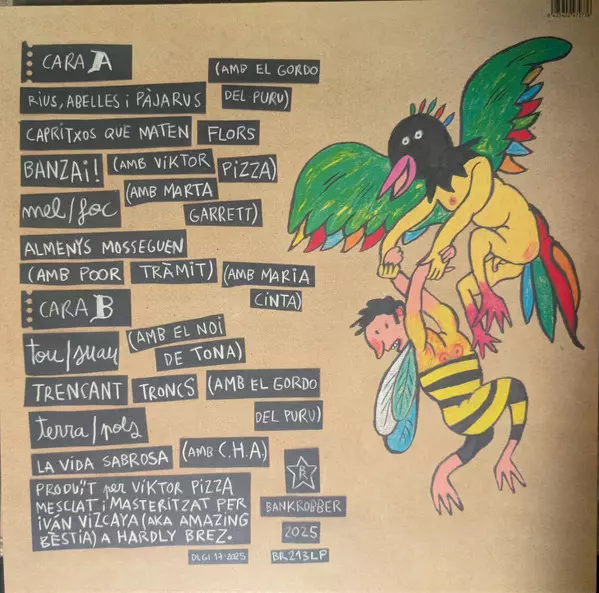 CARA A
(AMB EL GORDO
RIUS, ABELLES i PÀJARUS
DEL PURU)
CAPRITXOS QUE MATEN FLORS
BANZAi! (AMB VÍKTOR PIZZA)
mel/foc (AMB MARTA
GARRETT)
ALMENYS MOSSEGUEN
(AMB POOR TRÀMIT) (AMB MARIA
CINTA)
CARA B
tou/suau (AMB EL NOI
DE TONA)
TRENCANT TRONCS (AMB EL GORDO
DEL PURU)
terra/pols
LA VIDA SABROSA (AMB C.H.A.)
PRODUÏT per VÍKTOR PIZZA
MESCLAT i MASTERITZAT PER
IVÁN VIZCAYA (AKA AMAZING
BÈSTIA) A HARDLY BREZ.
R
BANKROBBER
2025
DLGI 17-2025
BR213LP